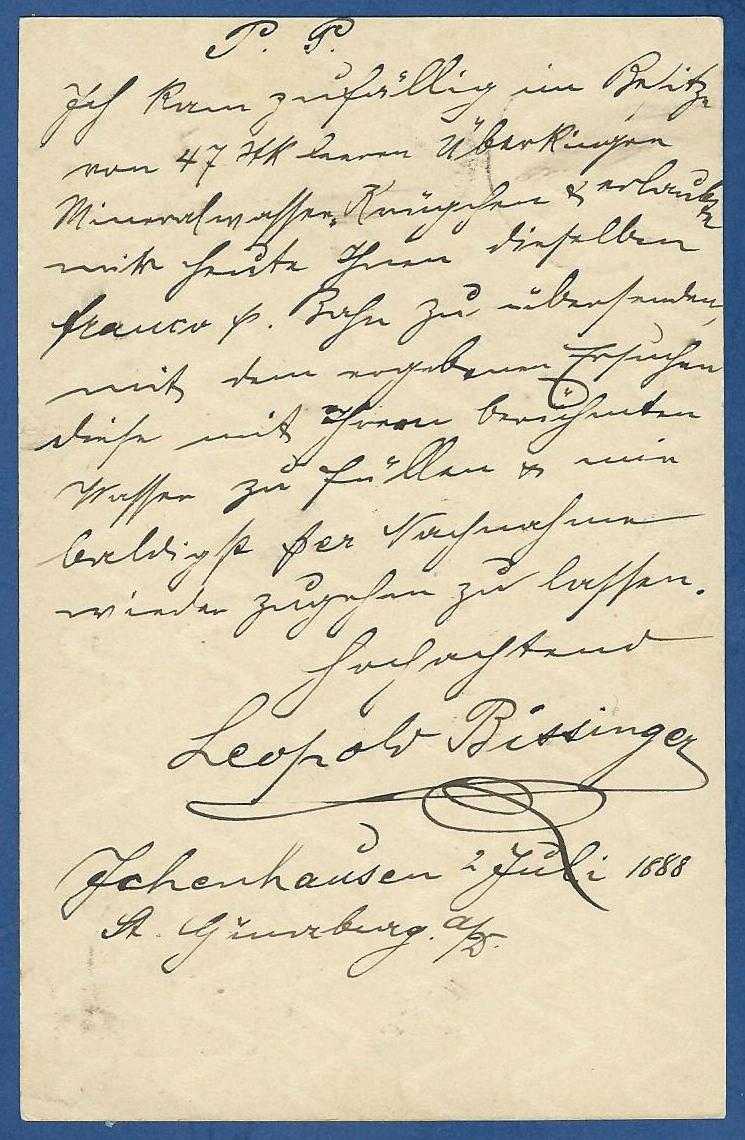 P. P.
Ich kam zufällig im Besitze
von 47 Stk leeren Überkinger
Mineralwasser-Krügchen & erlaubte
mir heute Ihnen dieselben
franco p. Bahn zu übersenden,
mit dem ergebenen Ersuchen
diese mit Ihrem berühmten
Wasser zu füllen & mir
baldigst per Nachnahme
wieder zugehen zu lassen.
Hochachtend
Leopold Bissinger
Ichenhausen 2 Juli 1888
St. Günzburg a/D.